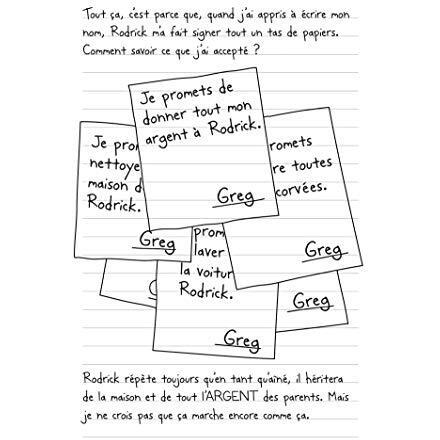 Tout ça, c'est parce que, quand j'ai appris à écrire mon
nom, Rodrick m'a fait signer tout un tas de papiers.
Comment savoir ce que j'ai accepté ?
Je promets de
donner tout mon
argent à Rodrick.
Greg
Je pro
nettoye
maison d
Rodrick.
Greg
romets
re toutes
corvées.
Greg
prom
laver
la voitur
Rodrick.
Greg
G
Greg
Rodrick répète toujours qu'en tant qu'aîné, il héritera
de la maison et de tout l'ARGENT des parents. Mais
je ne crois pas que ça marche encore comme ça.